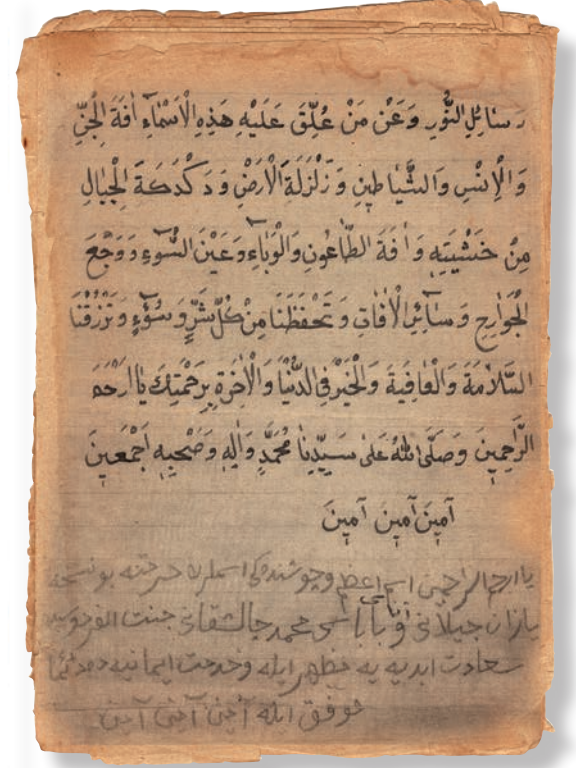 رسائل النُّورِ وَعَنْ مَنْ عُلِّقَ عَلَيْهِ هَذِهِ الْاَسْمَاۤءِ اٰفَةَ الْجِنِّ
وَالْاِنْسِ وَالشَّيَاطِينِ وَزَلْزَلَةَ الْاَرْضِ وَدَكْدَكَةَ الْجِبَالِ
مِنْ خَشْيَتِهِ وَاٰفَةَ الطَّاعُونِ وَالْوَبَاۤءِ وَعَيْنَ السُّوۤءِ وَوَجْعَ
الْجَوَارِحِ وَسَاۤئِرِ الْاٰفَاتِ وَتَحْفَظَنَا مِنْ كُلِّ شَرٍّ وَسُوۤءٍ وَتَرْزُقَنَا
السَّلَامَةَ وَالْعَافِيَةَ وَالْخَيْرَ فِي الدُّنْيَا وَالْاٰخِرَةِ بِرَحْمَتِكَ يَا اَرْحَمَ
الرَّاحِمِينَ وَصَلَّى اللّٰهُ عَلَى سَيِّدِنَا مُحَمَّدٍ وَاٰلِهِ وَصَحْبِهِ اَجْمَعِينَ
آمِينَ آمِينَ آمِينَ
يا ارحم الراحمين اسم اعظم وجوشنك اسملرى حرمتنه بو نسخه
يازان جيلانى و بابا محمد جنت الفردوس
سعادت ابديه يه مظهر ايله وخدمت ايمانيه ده دائما
موفق ايله آمين آمين آمين